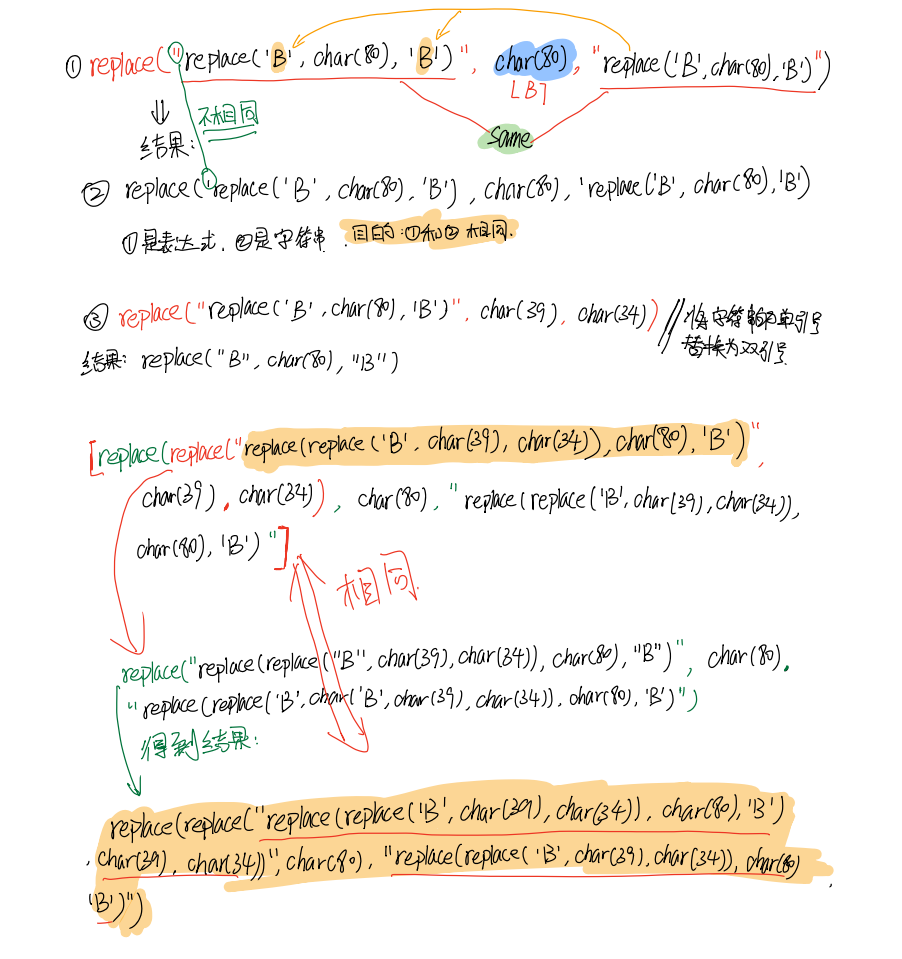 ① replace("replace('B', char(80), 'B')", char(80), "replace('B',char(80),'B')")
[B]
不相同
same
结果:
② replace('replace('B', char(80), 'B'), char(80), 'replace('B', char(80),'B')
①是表达式. ②是字符串. 目的:①和②相同.
③ replace("replace('B',char(80),'B')", char(39), char(34)) // 将字符串的单引号
替换为双引号
结果: replace("B", char(80), "B")
[replace(replace("replace(replace('B', char(39), char(34)),char(80),'B')",
char(39), char(34)), char(80), "replace(replace('B',char(39),char(34)),
char(80),'B')"]
相同.
replace("replace(replace("B",char(39),char(34)),char(80),"B")", char(80),
"replace(replace('B',char('B',char(39),char(34)),char(80),'B')")
得到结果:
replace(replace("replace(replace('B',char(39),char(34)), char(80),'B')
,char(39), char(34))",char(80), "replace(replace('B',char(39),char(34)),char(80)
,
'B')")